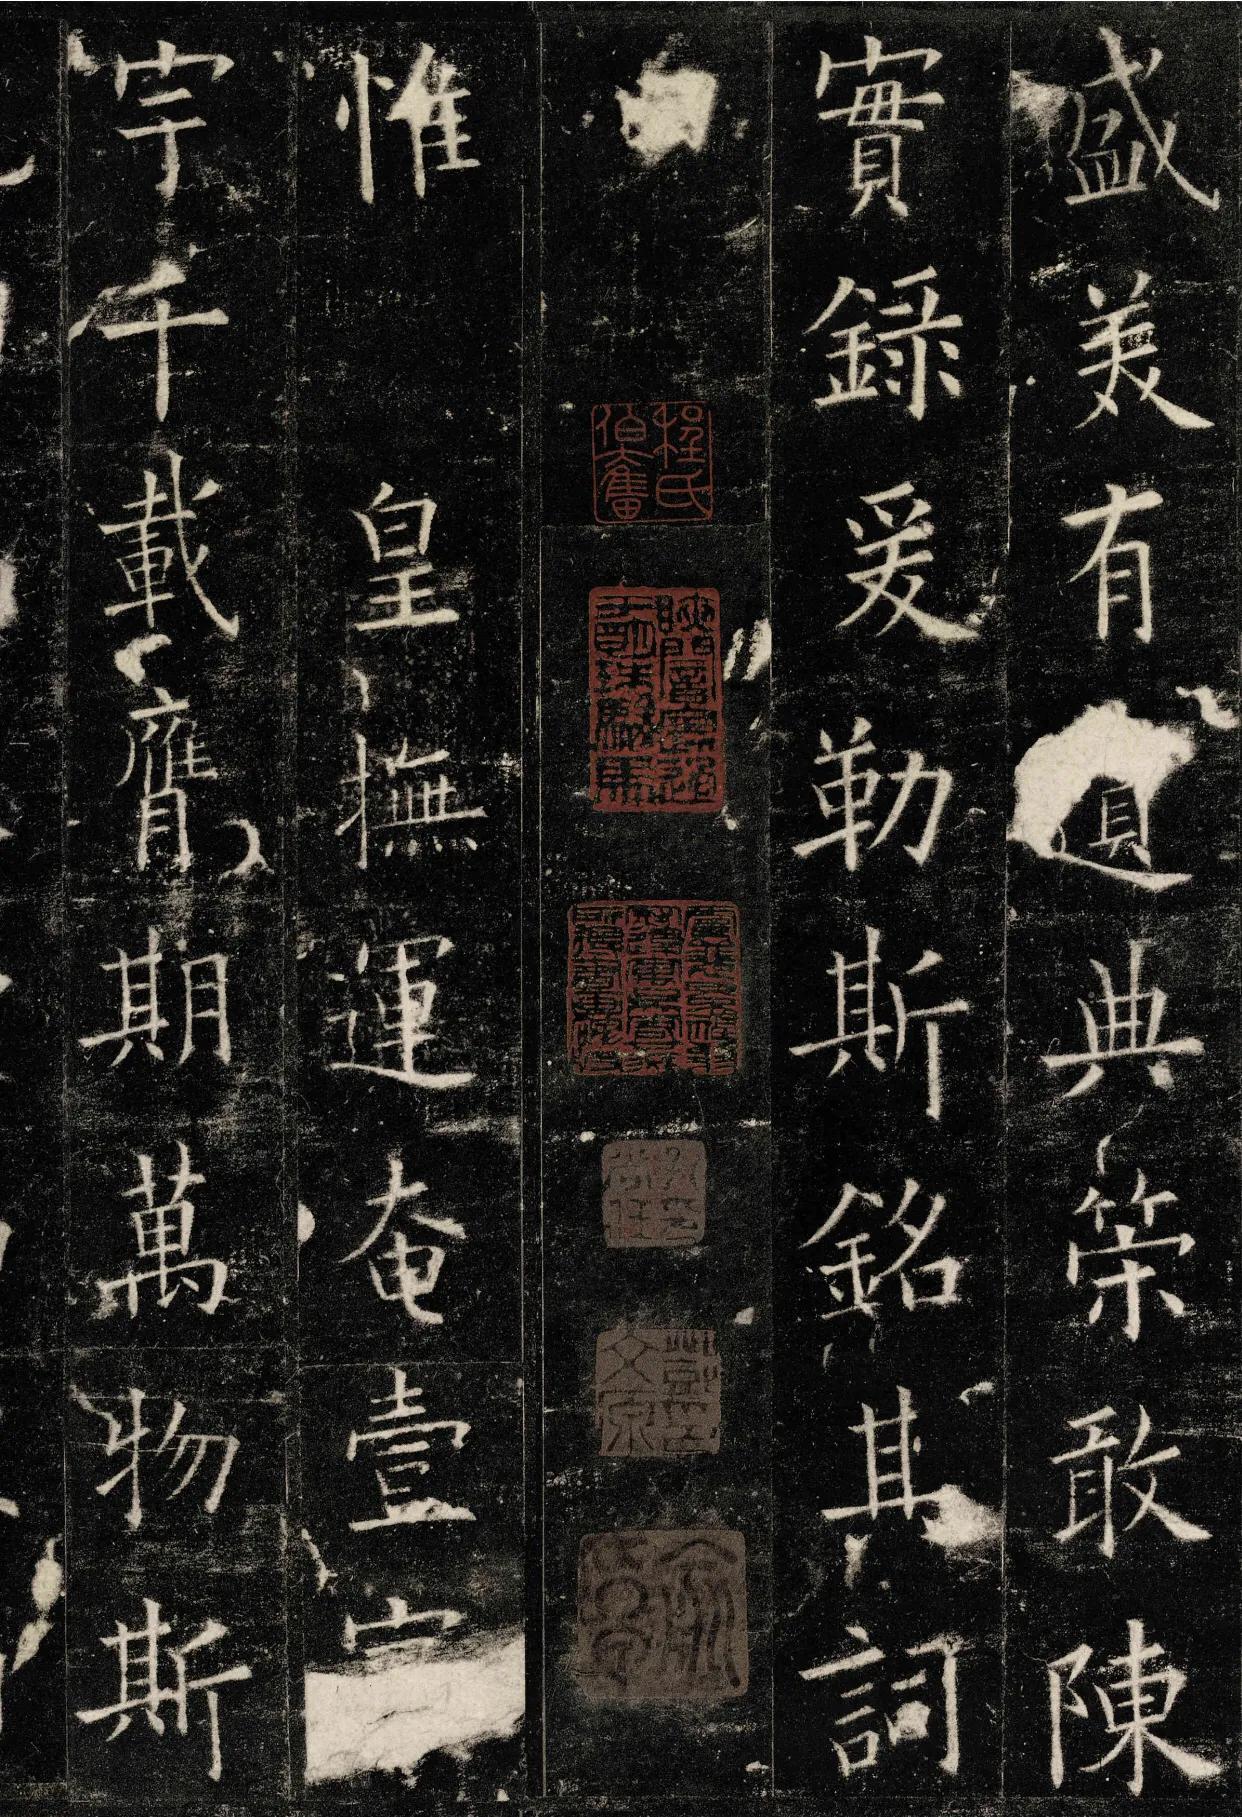 盛美有遺典策敢陳
實錄爰勒斯銘其詞
程氏伯奮
惟皇撫運奄壹
宇千載膺期萬物斯